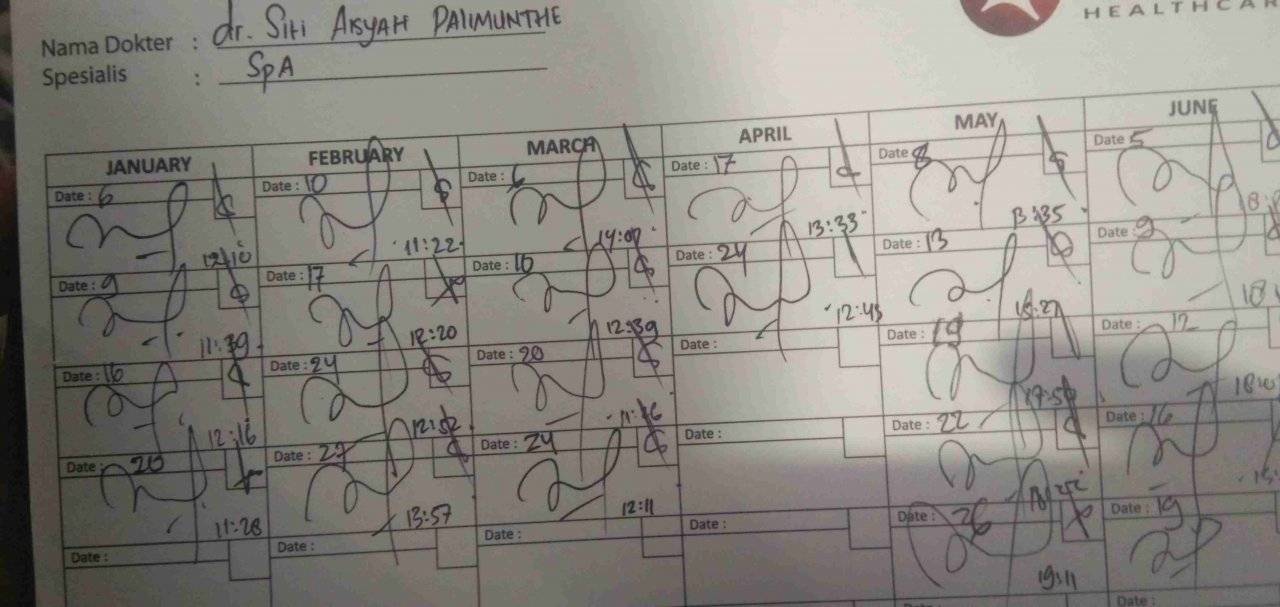 HEALTHCAR
Nama Dokter : dr. Siti Aisyah Dalimunthe
Spesialis : SpA
JANUARY FEBRUARY MARCH APRIL MAY JUNE
Date : 6 Date : 10 Date : 6 Date : 17 Date 8 Date 5
12:10 11:22 14:07 13:33 13:35
Date : 9 Date : 17 Date : 10 Date : 24 Date : 13 Date : 9
11:39 12:20 12:39 12:45 15:27
Date : 16 Date : 24 Date : 20 Date : Date : 19 Date : 12
12:16 12:52 11:46
Date : 20 Date : 27 Date : 24 Date : Date : 22 Date : 16
11:28 13:57 12:11
Date : Date : Date : Date : Date : 26 Date : 19
19:11
Date : Date :